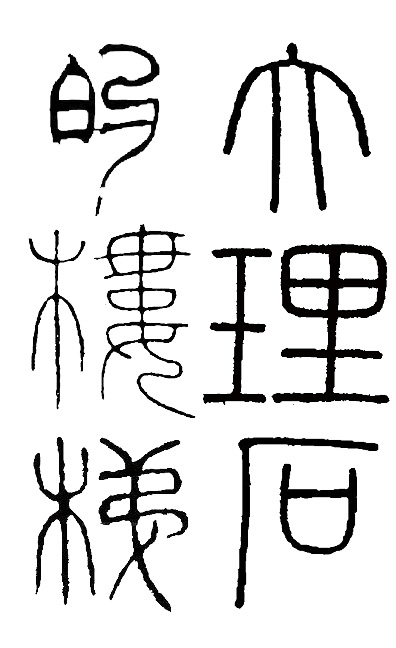 大理石
的樓梯